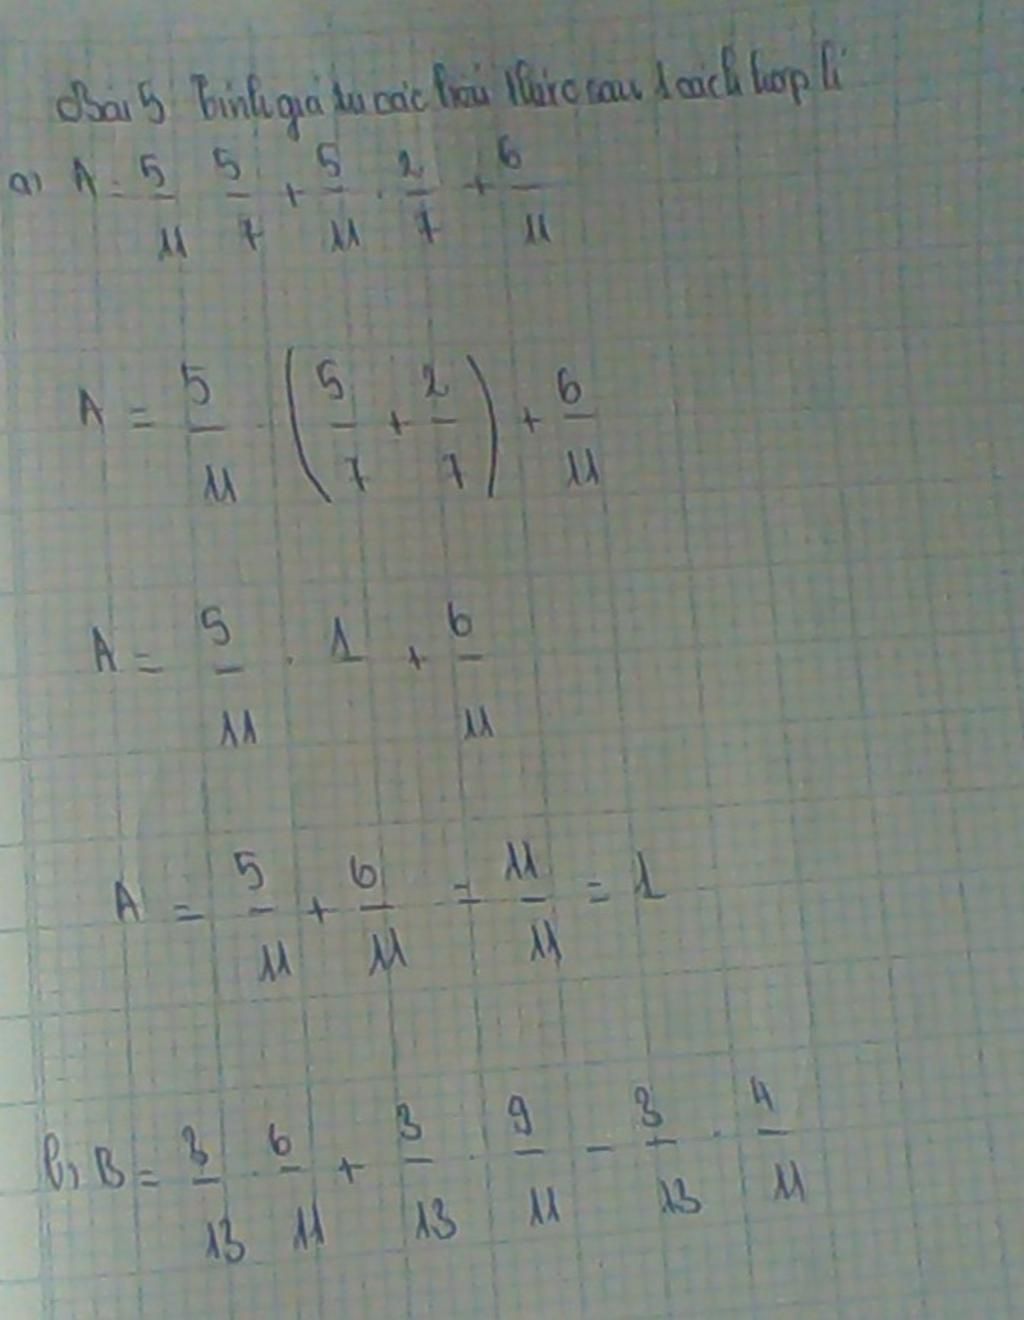 Bài 5 Tính giá trị các biểu thức sau 1 cách hợp lí
a) A = 5/11 5/7 + 5/11 . 2/7 + 6/11
A = 5/11 . (5/7 + 2/7) + 6/11
A = 5/11 . 1 + 6/11
A = 5/11 + 6/11 = 11/11 = 1
b, B = 3/13 . 6/11 + 3/13 . 9/11 - 3/13 . 4/11